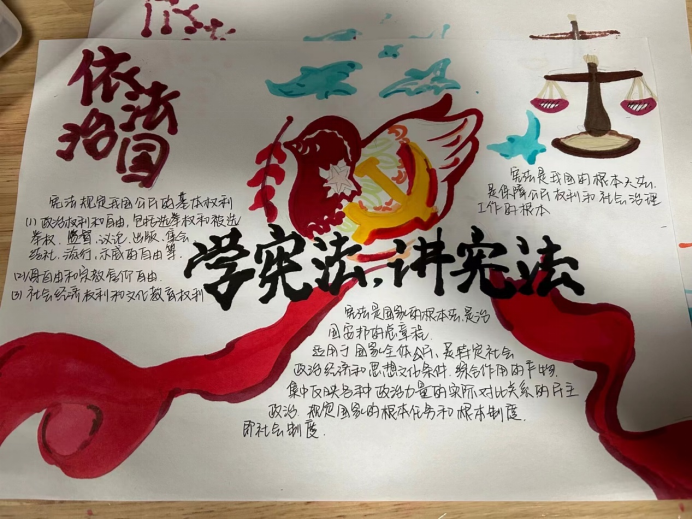 依法
治国
宪法规定我国公民的基本权利
(1) 政治权利和自由,包括选举权和被选
举权、监督、议论、出版、集会
结社、游行、示威的自由等.
(2)身自由和宗教信仰自由.
(3) 社会经济权利和文化教育权利
宪法是我国的根本大法.
是保障公民权利和社会治理
工作的根本
学宪法,讲宪法
宪法是国家的根本法,是治
国安邦的总章程.
适用于国家全体公民,是特定社会
政治经济和思想文化条件.综合作用的产物.
集中反映各种政治力量的实际对比关系的民主
政治.规定国家的根本任务和根本制度.
即社会制度.